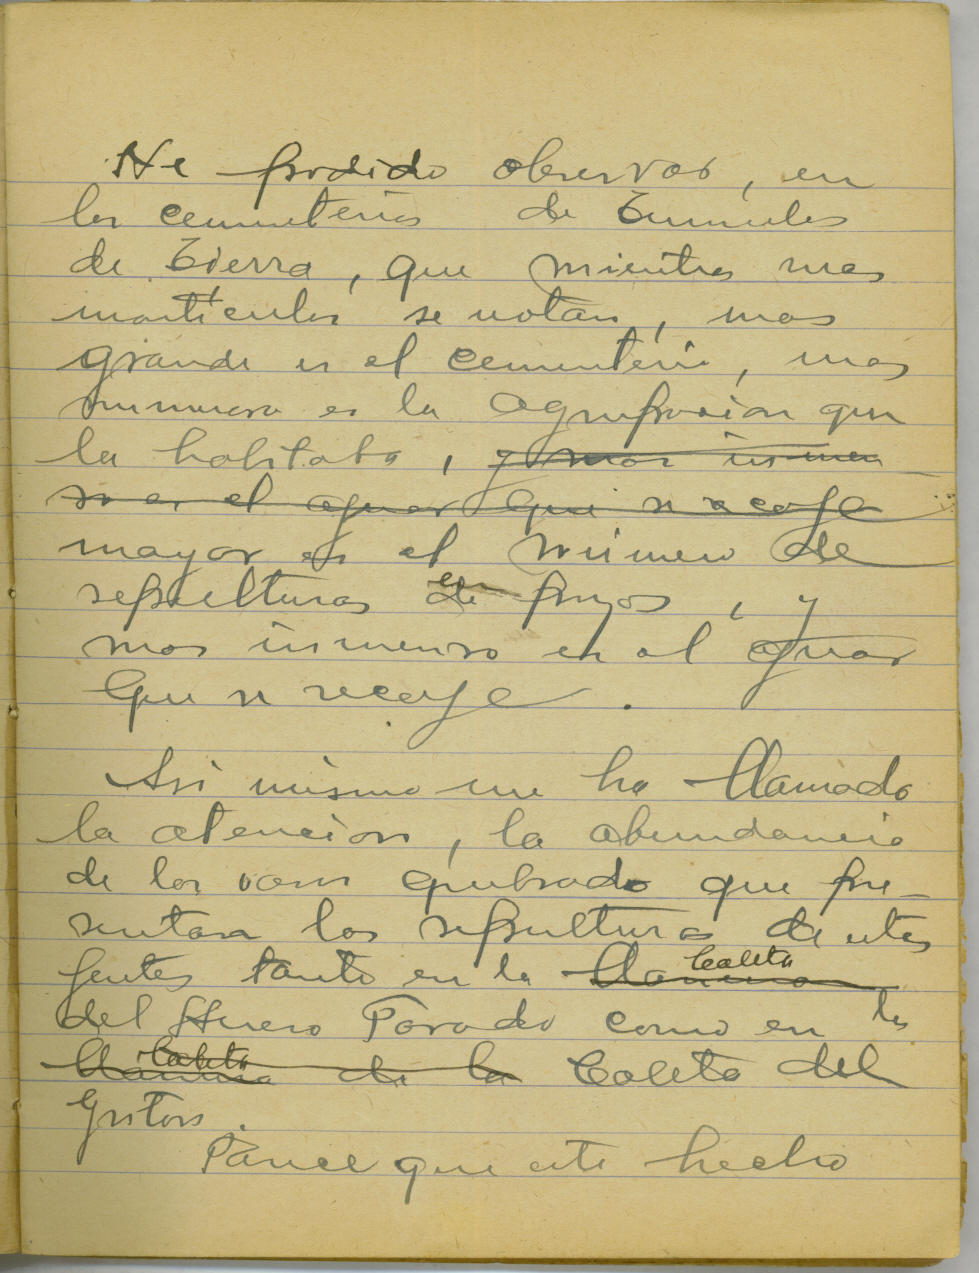 He podido observar, en
los cementerios de Tumulos
de Tierra, que mientras mas
monticulos se notan, mas
grande es el cementerio, mas
numerosa es la agrupacion que
la habitaba, y mas inmen
so es el ajuar que se recoje
mayor es el número de
sepulturas de en pozos, y
mas inmenso es el ajuar
que se recoje.
Asi mismo me ha llamado
la atencion, la abundancia
de los vasos quebrado que pre-
sentan las sepulturas de estas
jentes tanto en la Caleta
del Hueso Parado como en la
Caleta de la Caleta del
Gritons.
Parece que este hecho